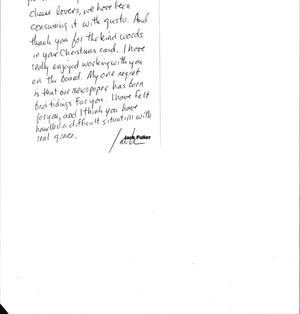 cheese lovers, we have been
consuming it with gusto. And
thank you for the kind words
in your Christmas card. I have
really enjoyed working with you
on the board. My one regret
is that our newspaper has born
bad tidings for you. I have felt
for you, and I think you have
handled a difficult situation with
real grace.
Jack
Jack Fuller